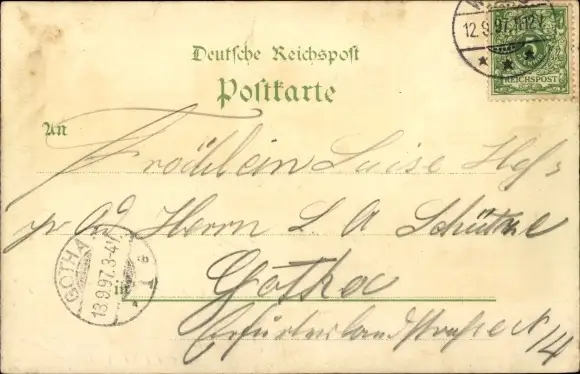 12.9.97.11-12V.
REICHSPOST
Deutsche Reichspost
Postkarte
An
Fräulein Luise Hess
pr Ad Herrn L A Schütze
GOTHA
13.9.97.3-4N.
in Gotha
Erfurterlandstrasse N 14